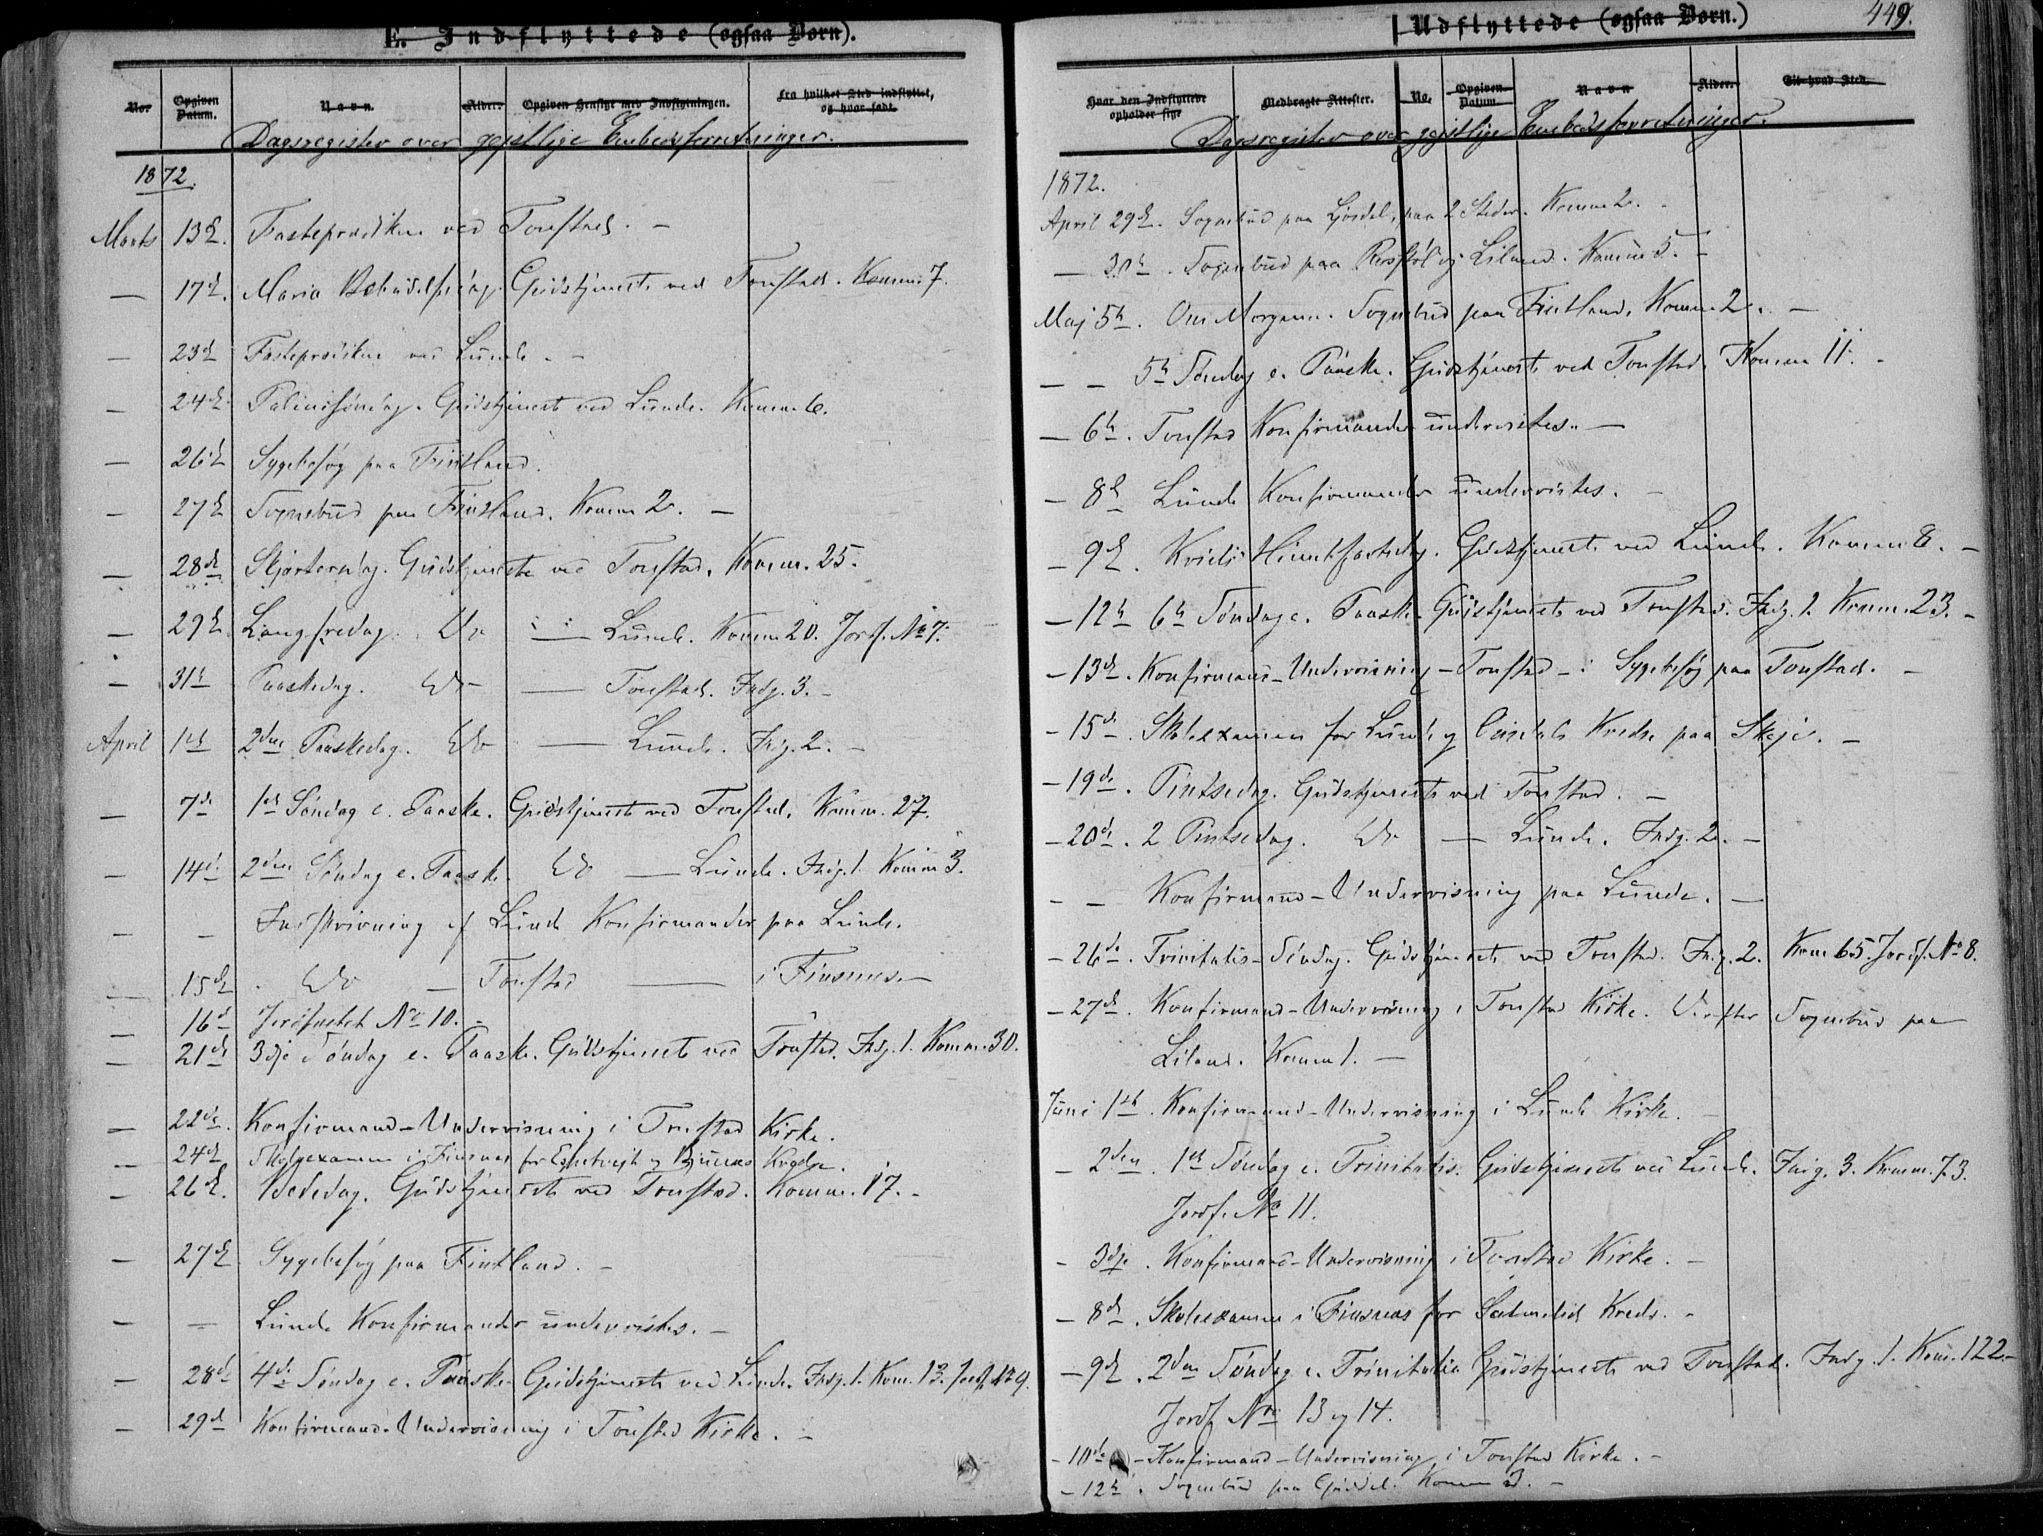 E. Indflyttede (ogsaa Børn).
No.
Opgiven Datum.
Navn.
Alder.
Opgiven Hensigt med Indflytningen.
Fra hvilket Sted indflyttet, og hvor født.
Dagsregister over gejstlige Embedsforretninger.
1872.
Marts 13de. Fasteprædiken ved Tonstad. —
— 17de. Maria Bebudelsesdag. Gudstjeneste ved Tonstad. Komm. 7.
— 23de Fasteprædiken ved Lunde. —
— 24de. Palmesøndag. Gudstjeneste ved Lunde. Komm. 6.
— 26de Sygebesøg paa Fintland.
— 27de Sognebud paa Fintland. Komm 2. —
— 28de Skjærtorsdag. Gudstjeneste ved Tonstad. Komm. 25.
— 29de Langfredag. Do — Lunde. Komm 20. Jordf. No 7.
— 31te Paaskedag. Do — Tonstad. Indg. 3. —
April 1ste 2den Paaskedag. Do — Lunde. Indg. 2. —
— 7de 1ste Søndag e. Paaske. Gudstjeneste ved Tonstad. Komm. 27.
— 14de 2den Søndag e. Paaske. Do — Lunde. Indg. 1. Komm 3.
— — Indskrivning af Lunde Konfirmander paa Lunde.
— 15de . Do — Tonstad — i Fintsnes. —
— 16de Jordfæstet No 10. —
— 21de 3dje Søndag e. Paaske. Gudstjeneste ved Tonstad. Indg. 1. Komm. 30.
— 22de. Konfirmand-Undervisning i Tonstad Kirke.
— 24de Skoleexamen i Finsnes for
— 26de. Bededag. Gudstjeneste ved Tonstad. Komm. 17. —
— 27de Sygebesøg paa Fintland. —
— — Lunde Konfirmander undervistes. —
— 28de 4de Søndag e. Paaske. Gudstjeneste ved Lunde. Indg. 1. Kom. 13. Jordf. No 9.
— 29de Konfirmand-Undervisning i Tonstad Kirke. —
Udflyttede (ogsaa Børn.)
449.
Hvor den Indflyttede opholder sig.
Medbragte Attester.
No.
Opgiven Datum.
Navn
Alder.
Til hvad Sted.
Dagsregister over gejstlige Embedsforretninger.
1872.
April 29de. Sognebud paa, paa 2 Steder. Komm 2. —
— 30te. Sognebud paa Rosstøl og Liland. Komm 5. —
Maj 5te. Om Morgenen. Sognebud paa Fintland. Komm 2. —
— — 5te Søndag e. Paaske. Gudstjeneste ved Tonstad. Komm 11. —
— 6te. Tonstad Konfirmander undervistes. —
— 8de Lunde Konfirmander undervistes. —
— 9de. Kristi Himmelfartsdag. Gudstjeneste ved Lunde. Komm 8. —
— 12te 6te Søndag e. Paaske. Gudstjeneste ved Tonstad. Indg. 1. Komm. 23. —
— 13de. Konfirmand-Undervisning – Tonstad – i Sygebesøg paa Tonstad. —
— 15de. Skoleexamen for Lunde og Kreds paa Skeje. —
— 19de. Pintsedag. Gudstjeneste ved Tonstad. —
— 20de. 2 Pintsedag. Do — Lunde. Indg. 2. —
— — Konfirmand-Undervisning paa Lunde. —
— 26de. Trinitatis-Søndag. Gudstjeneste ved Tonstad. Indg. 2. Kom 65. Jordf. No 8.
— 27de. Konfirmand-Undervisning i Tonstad Kirke. Derefter Sognebud paa
Liland. Komm 1. —
Juni 1ste. Konfirmand-Undervisning i Lunde Kirke. —
— 2den. 1ste Søndag e. Trinitatis. Gudstjeneste ved Lunde. Indg. 3. Komm. 73.
Jordf. No 11.
— 3dje. Konfirmand-Undervisning i Tonstad Kirke. —
— 8de. Skoleexamen i Finsnes for Kreds. —
— 9de. 2den Søndag e. Trinitatis Gudstjeneste ved Tonstad. Indg. 1. Kom. 122. —
Jordf No 13 og 14.
— 10de — Konfirmand-Undervisning i Tonstad Kirke. —
— 12te. Sognebud paa. Komm 3. —